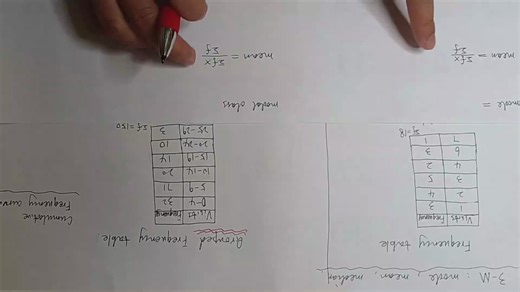 3-M : mode, mean, median
Frequency table
Visits Frequency
1 3
2 4
3 5
2
6 3
7 1
Σf=18
mode =
mean = Σfx
Σf
Grouped Frequency table.
Visits Frequency
0-4 32
5-9 71
10-14 20
15-19 14
20-24 10
25-29 3
Σf=150
modal class
mean = Σfx
Σf
Cumulative
Frequency